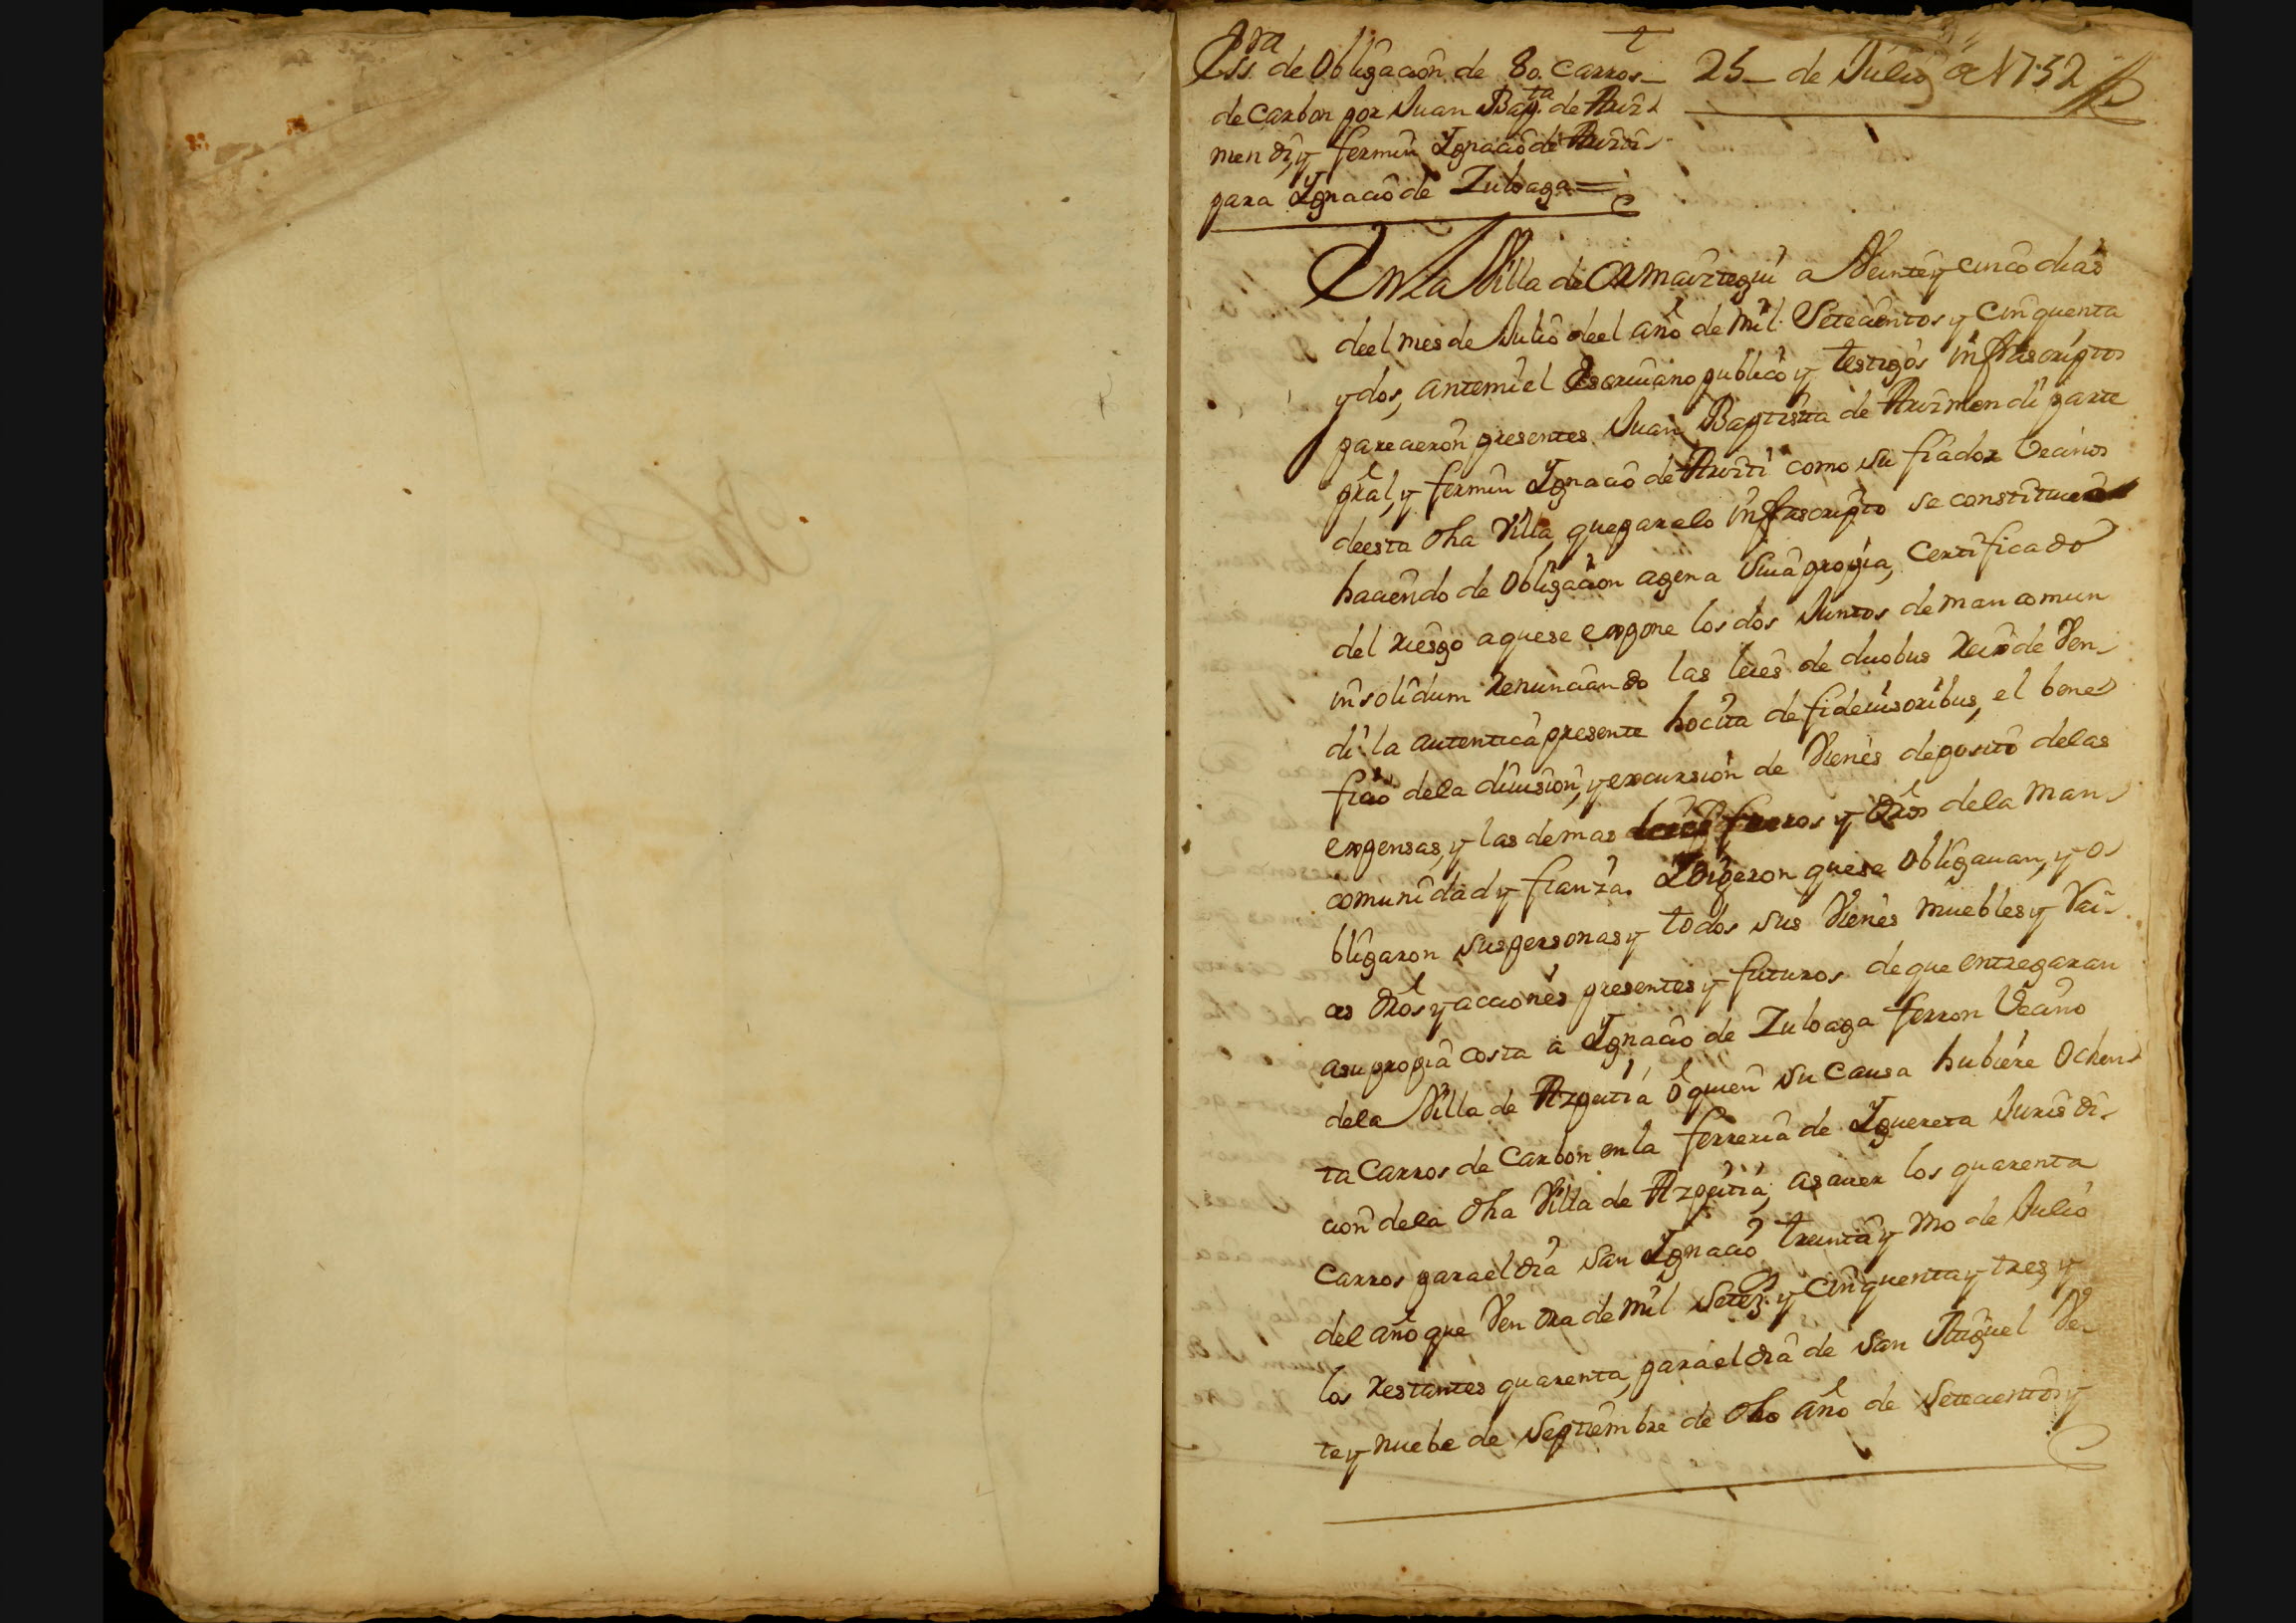 Essra de Obligacion de 80 carros
de carbon por Juan Bapta de Arviz
mendi, y fermin Ygnacio de Arviti
para Ygnacio de Zuloaga =
25 de Julio de 1752
En la Villa de Ormaiztegui a Veinte y cinco dias
deel mes de Julio deel año de mil Setecientos y cinquenta
y dos, ante mi el Escriuano publico y testigos infrascriptos
parecieron presentes Juan Baptista de Arvizmendi parte
pral, y fermin Ygnacio de Arviti como su fiador Vecinos
deesta dha Villa, que para lo infrascripto se constituie
haciendo de obligacion agena suia propia, certificado
del riesgo a que se expone los dos Juntos de mancomun
insolidum renunciando las leies de duobus reis de Ven
di la autentica presente hocita de fideiusoribus, el bene
ficio de la diuision, y excursion de Vienes deposito de las
expensas, y las demas y dros de la man
comunidad y fianza. Dixeron que se obligauan, y o
bligaron sus personas y todos sus Vienes muebles y Rai
ces dros y acciones presentes y futuros de que entregaran
a su propia costa a Ygnacio de Zuloaga ferron Vecino
de la Villa de Azpeitia ó quien su causa hubiere ochen
ta Carros de Carbon en la ferreria de Yguereta Jurisdi
cion de la dha Villa de Azpeitia, a sauer los quarenta
carros para el dia San Ygnacio treinta y uno de Julio
del año que Vendra de mil Setez. y Cinquenta y tres, y
los restantes quarenta, para el dia de San Miguel Ve
te y nuebe de Septiembre de dho año de Setecientos y